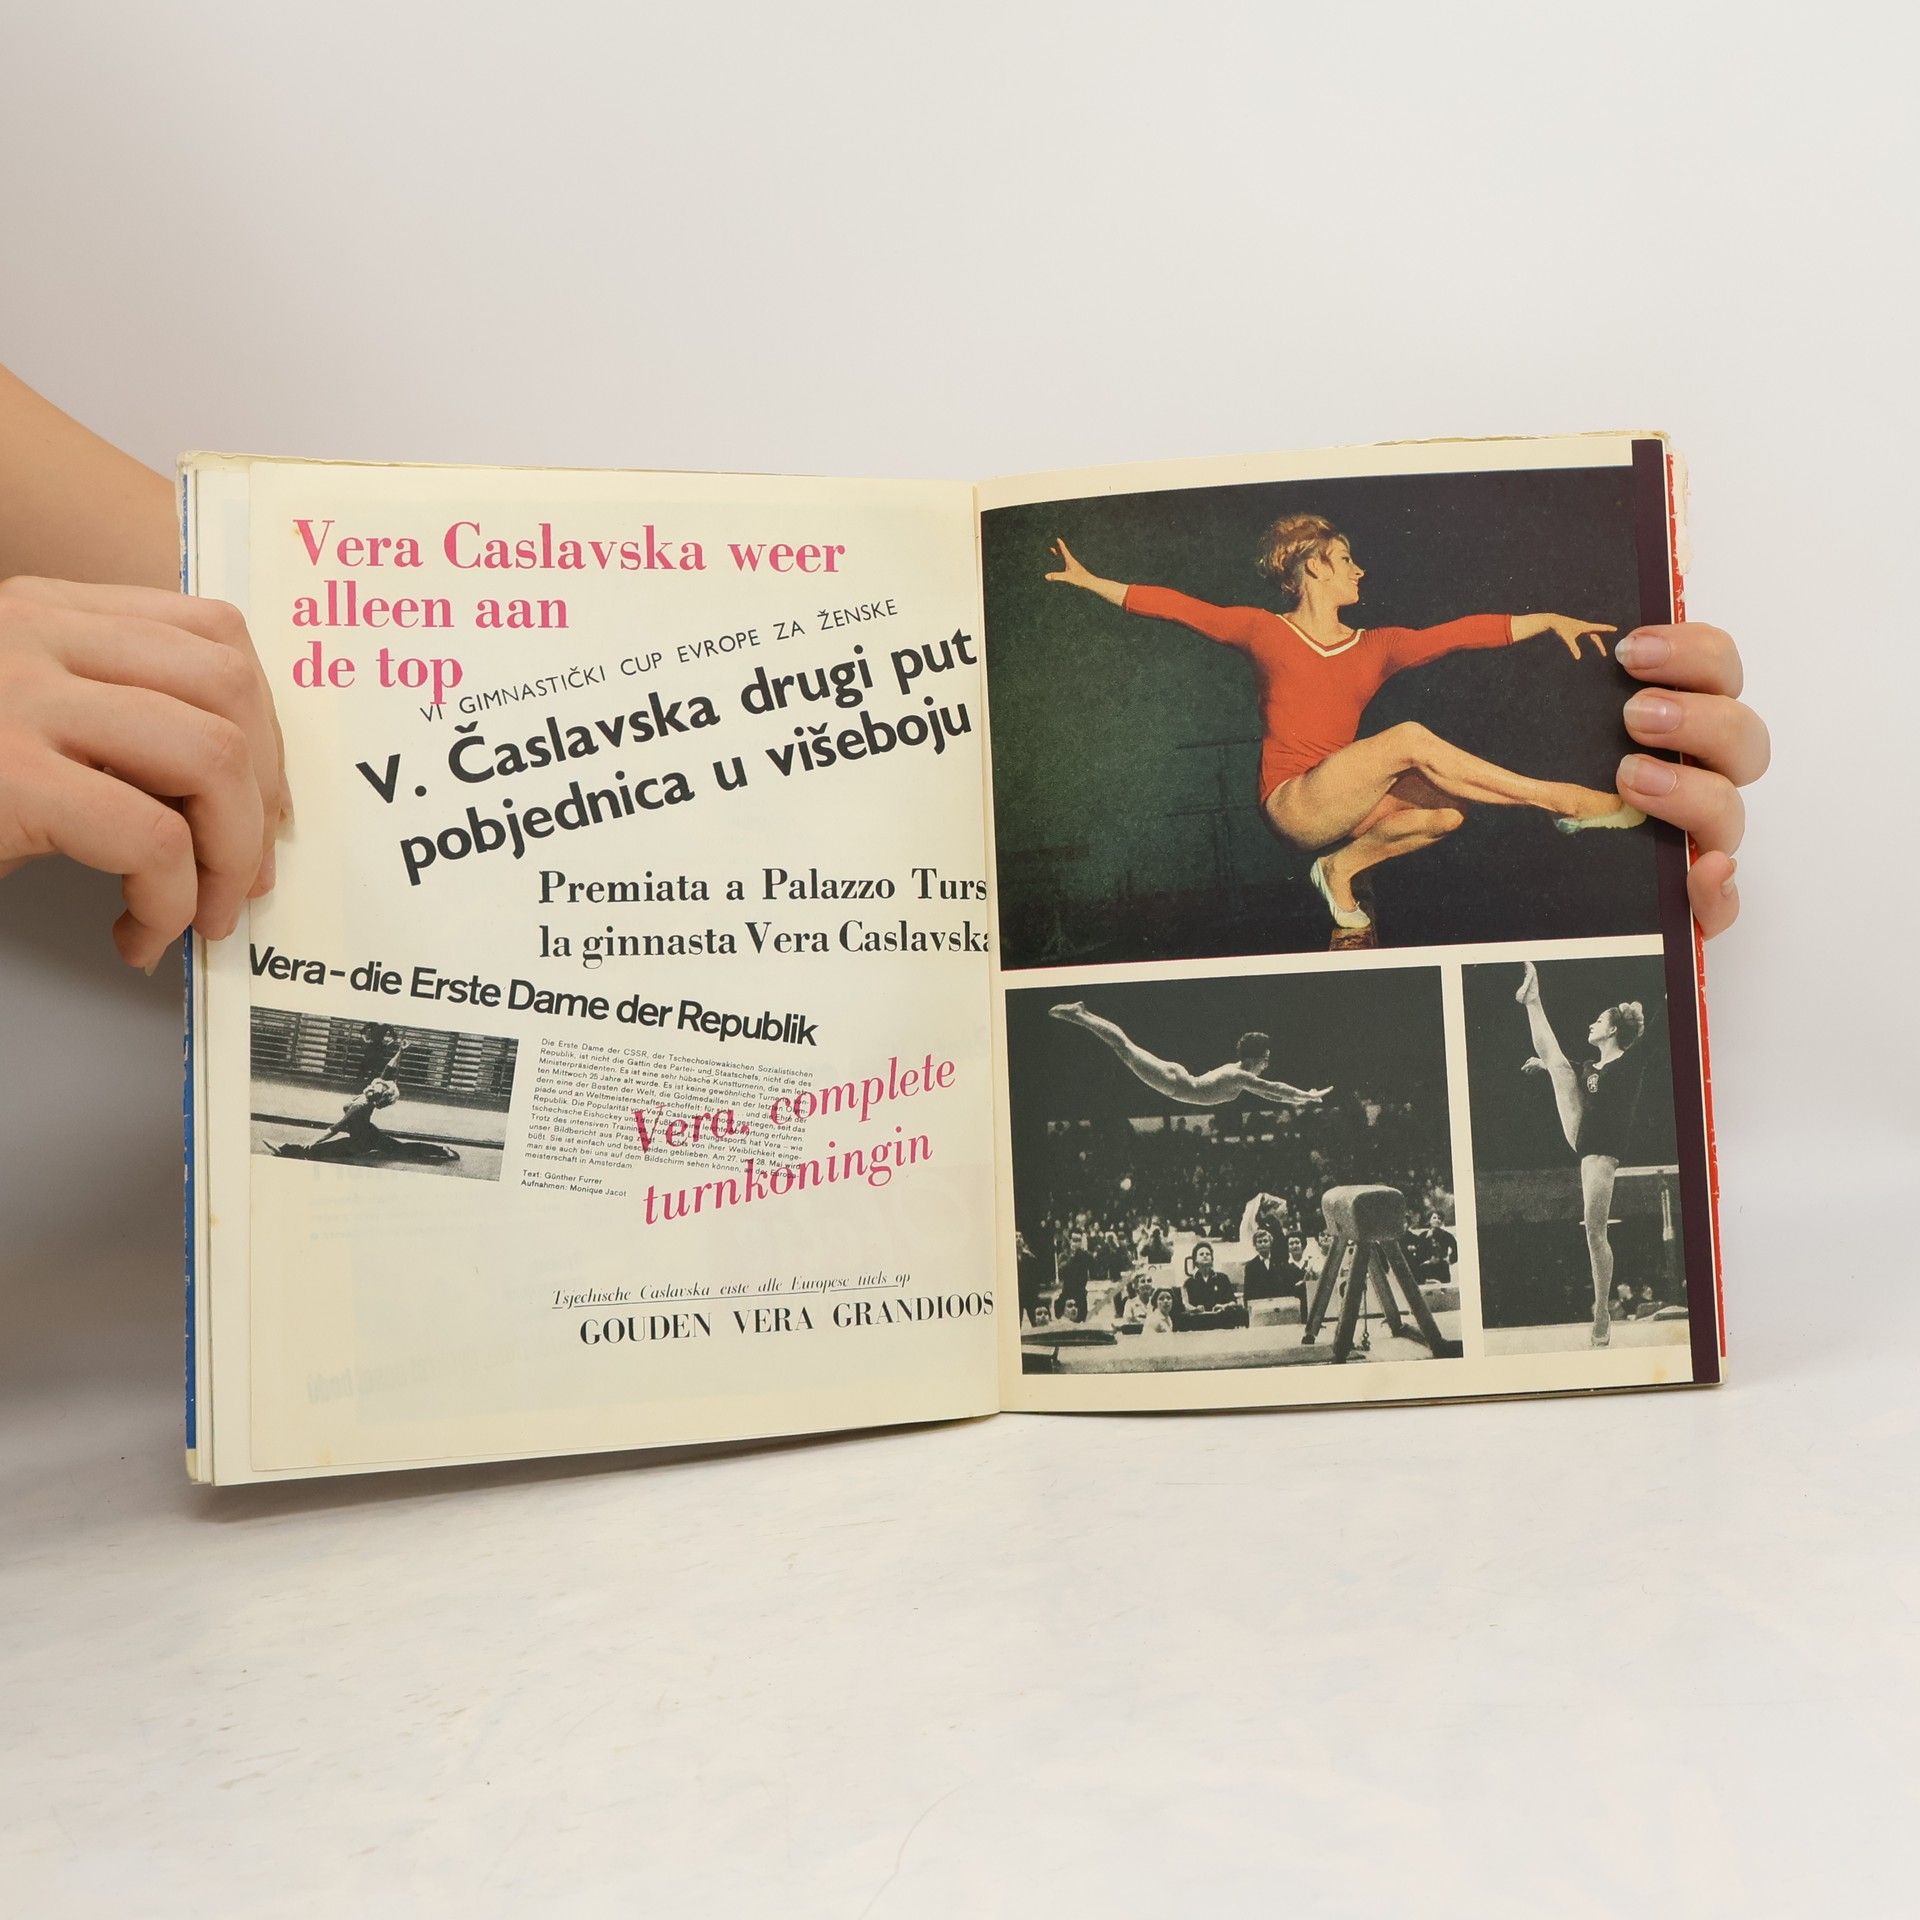 Vera Caslavska weer
alleen aan
de top
VI GIMNASTIČKI CUP EVROPE ZA ŽENSKE
V. Časlavska drugi put
pobjednica u višeboju
Premiata a Palazzo Turs
la ginnasta Vera Caslavska
Vera-die Erste Dame der Republik
Die Erste Dame der CSSR, der Tschechoslowakischen Sozialistischen
Republik, ist nicht die Gattin des Partei- und Staatschefs, nicht die des
Ministerpräsidenten. Es ist eine sehr hübsche Kunstturnerin, die am letz-
ten Mittwoch 25 Jahre alt wurde. Es ist keine gewöhnliche Turnerin, son-
dern eine der Besten der Welt, die Goldmedaillen an der letzten Olym-
piade und an Weltmeisterschaften scheffelt: für sich und die Ehre der
Republik. Die Popularität von Vera Caslavska
tschechische Eishockey und der Fußball
Trotz des intensiven Trainings
unser Bildbericht aus Prag zeigt – nichts von ihrer Weiblichkeit einge-
büßt. Sie ist einfach und bescheiden geblieben. Am 27. und 28. Mai wird
man sie auch bei uns auf dem Bildschirm sehen können, an der Europa-
meisterschaft in Amsterdam.
Text: Günther Furrer
Aufnahmen: Monique Jacot
Vera, complete
turnkoningin
Tsjechische Caslavska eiste alle Europese titels op
GOUDEN VERA GRANDIOOS